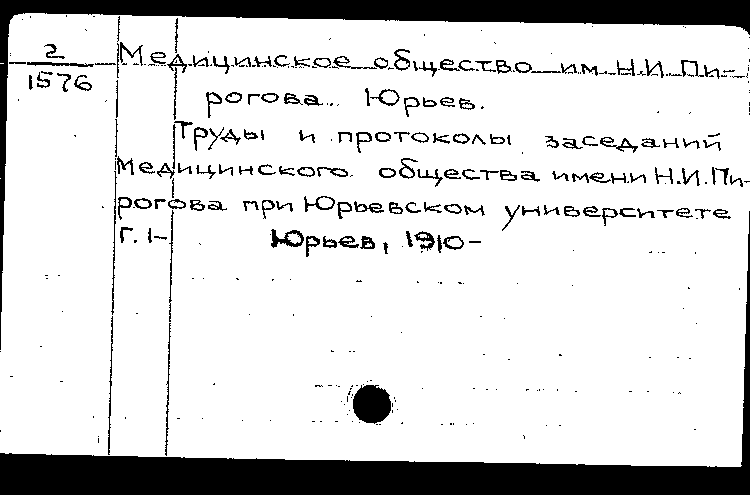 2
1576
Медицинское общество им Н.И. Пи-
рогова. Юрьев.
Труды и протоколы заседаний
Медицинского общества имени Н.И. Пи-
рогова при Юрьевском университете
Г. 1- Юрьев, 1910-